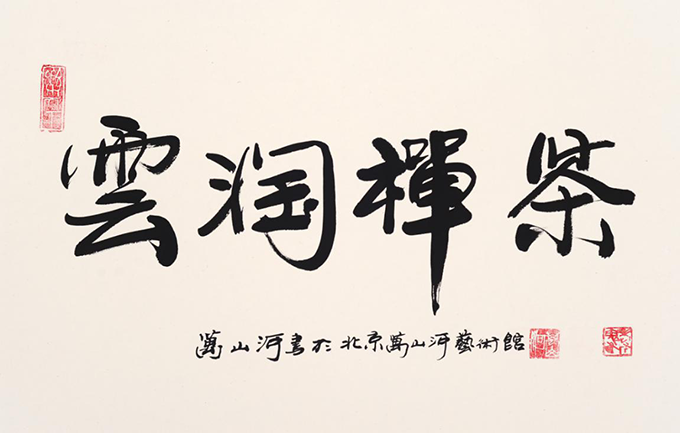 雲润禪茶
萬山河書於北京萬山河藝術館